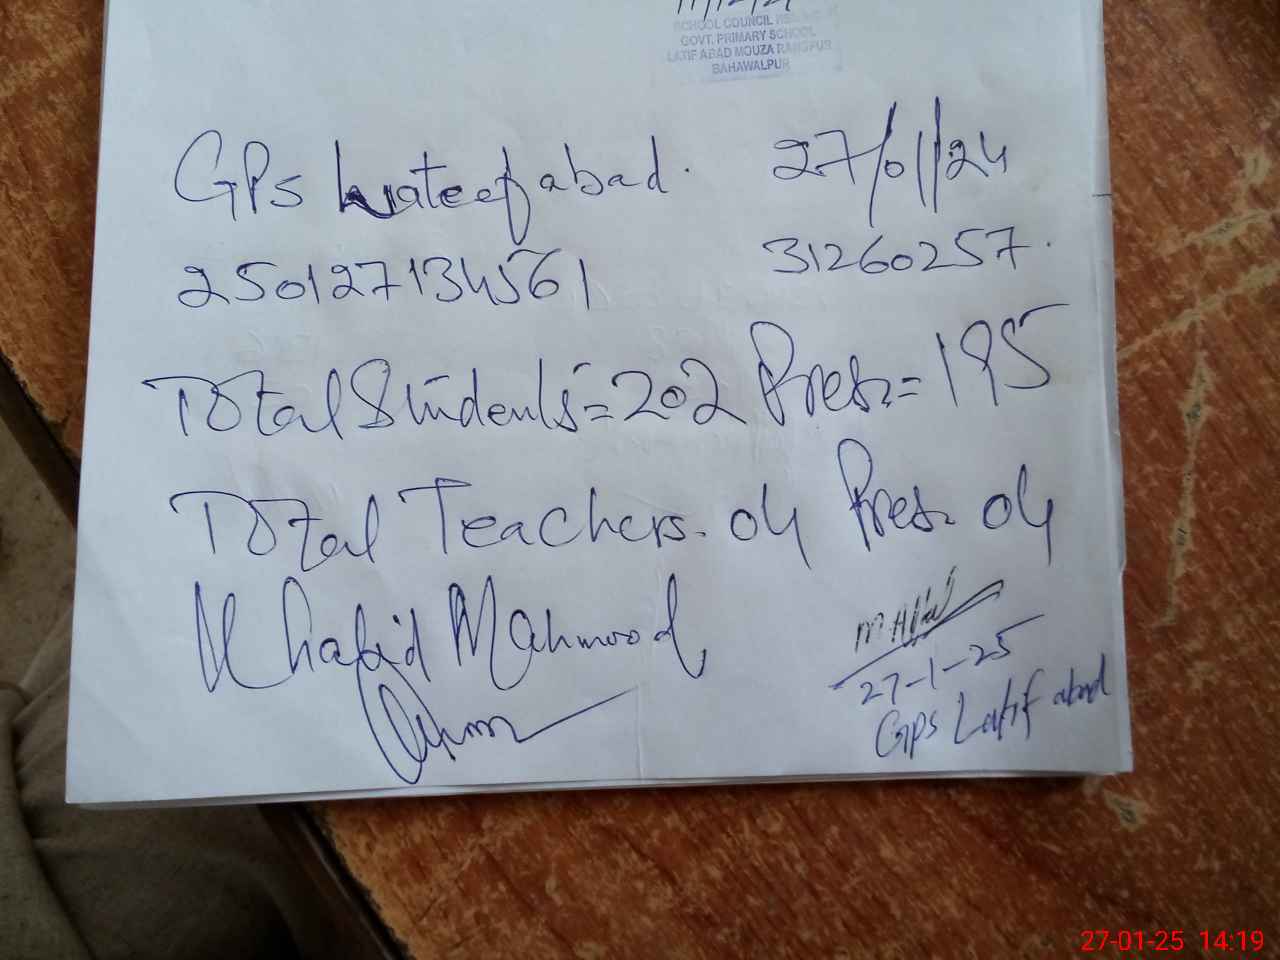 SCHOOL COUNCIL
GOVT. PRIMARY SCHOOL
LATIF ABAD MOUZA RANGPUR
BAHAWALPUR
GPs Lateefabad. 27/01/24
250127134561 31260257.
Total Students = 202 Pres = 195
Total Teachers - 04 Pres - 04
Khalid Mahmood
27-1-25
GPS Latif abad
27-01-25 14:19